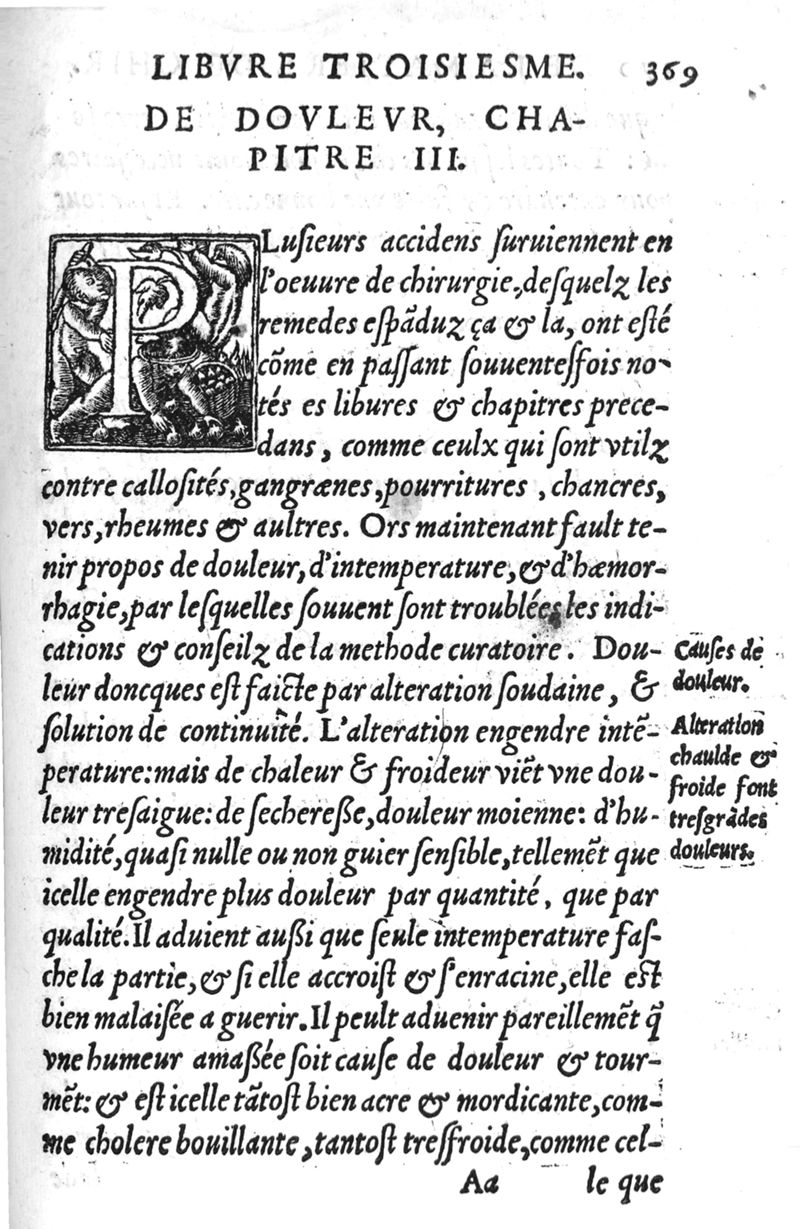 LIBVRE TROISIESME. 369
DE DOVLEVR, CHA-
PITRE III.
PLuſieurs accidens ſuruiennent en
l'oeuure de chirurgie, deſquelz les
remedes eſpãduz ça & la, ont eſté
cõme en paſſant ſouuenteſfois no-
tés es libures & chapitres prece-
dans, comme ceulx qui ſont vtilz
contre calloſités, gangrænes, pourritures, chancres,
vers, rheumes & aultres. Ors maintenant fault te-
nir propos de douleur, d'intemperature, & d'hæmor-
rhagie, par leſquelles ſouuent ſont troublées les indi-
cations & conſeilz de la methode curatoire. Dou-
leur doncques eſt faicte par alteration ſoudaine, &
ſolution de continuité. L'alteration engendre intẽ-
perature: mais de chaleur & froideur viẽt vne dou-
leur treſaigue: de ſechereſſe, douleur moienne: d'hu-
midité, quaſi nulle ou non guier ſenſible, tellemẽt que
icelle engendre plus douleur par quantité, que par
qualité. Il aduient auſſi que ſeule intemperature faſ-
che la partie, & ſi elle accroiſt & s'enracine, elle eſt
bien malaiſée a guerir. Il peult aduenir pareillemẽt q̃
vne humeur amaſſée ſoit cauſe de douleur & tour-
mẽt: & eſt icelle tãtoſt bien acre & mordicante, com-
me cholere bouillante, tantoſt treſfroide, comme cel-
Aa le que
Cauſes de
douleur.
Alteration
chaulde &
froide font
treſgrãdes
douleurs.